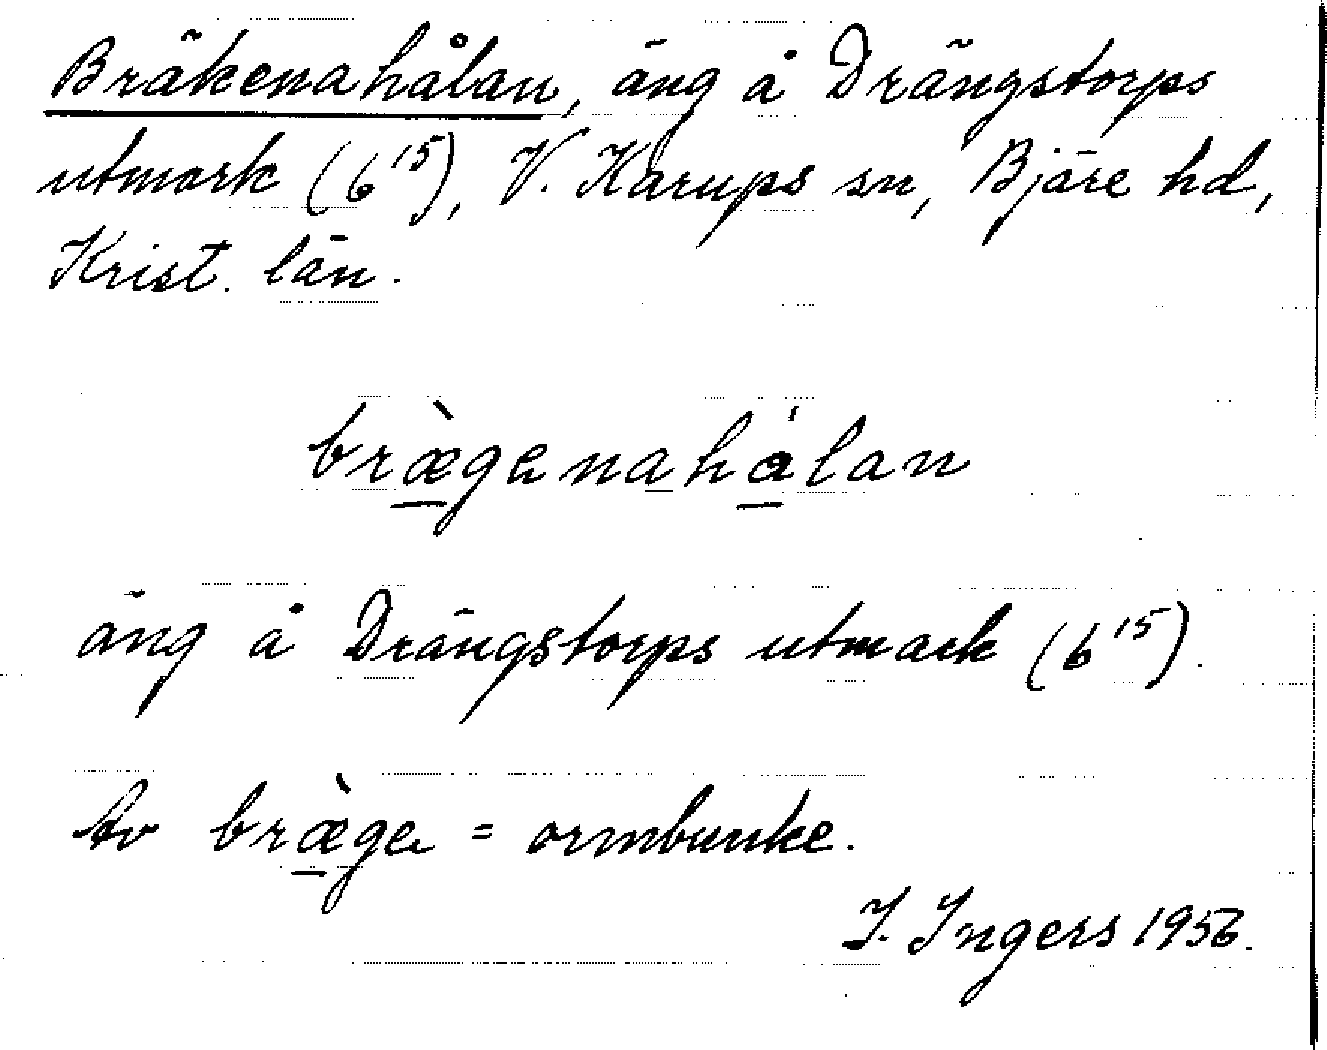 Bräkenahålan, äng å Drängstorps
utmark (6¹⁵), V. Karups sn, Bjäre hd,
Krist. län.
bræ̀genahålan
äng å Drängstorps utmark (6¹⁵).
Av bræ̀ge = ormbunke.
I. Ingers 1956.